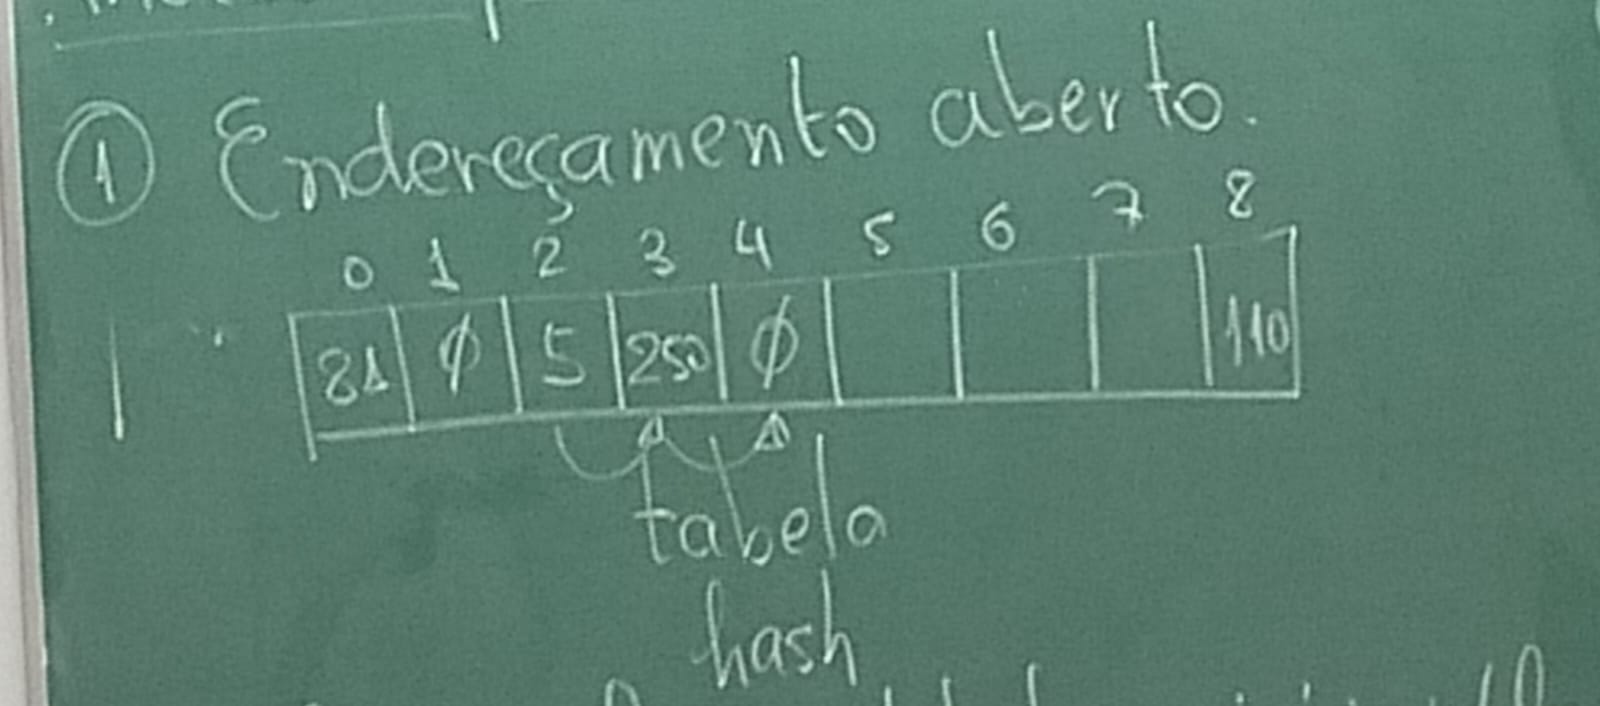 ① Endereçamento aberto.
0 1 2 3 4 5 6 7 8
81 ∅ 5 250 ∅ 110
tabela
hash